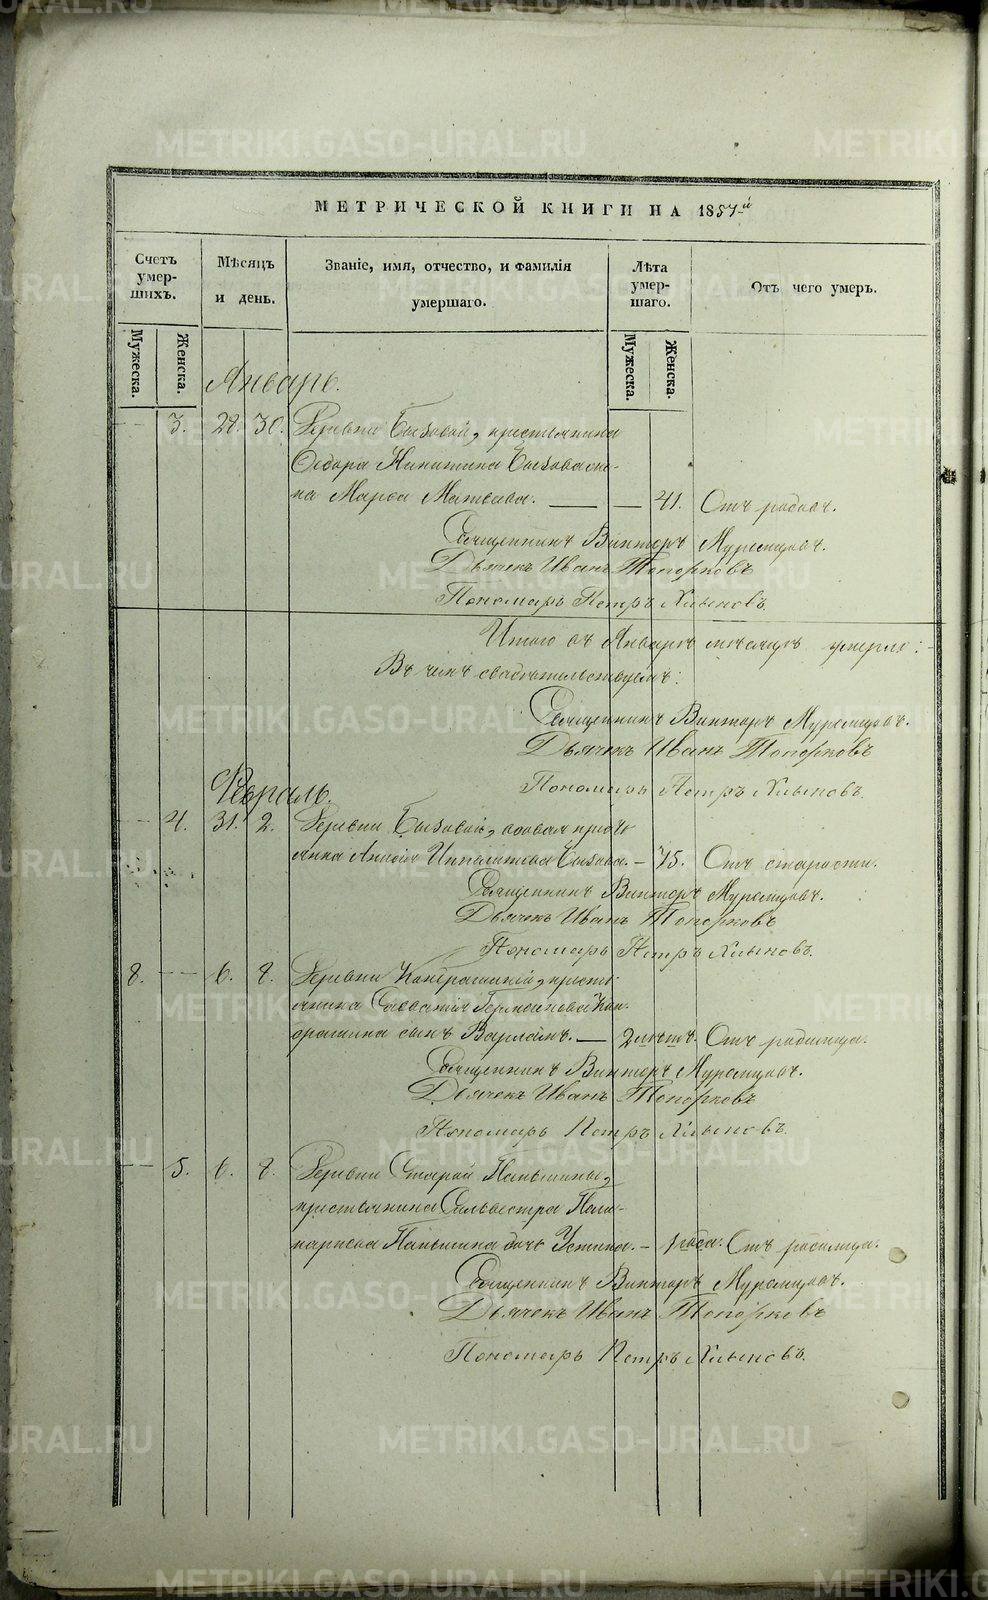 METRIKI.GASO-URAL.RU
МЕТРИЧЕСКОЙ КНИГИ НА 1857-й
Счетъ умер-шихъ.
Мѣсяцъ и день.
Званіе, имя, отчество, и фамилія умершаго.
Лѣта умер-шаго.
Отъ чего умеръ.
Мужеска.
Женска.
Мужеска.
Женска.
Январь.
3. 28. 30. Деревни Быковой, крестьянина
Ѳедора Никитина Быкова же-
на Марѳа Матвѣева. — — 41. Отъ родовъ.
Священникъ Викторъ Муромцовъ.
Дьячекъ Иванъ Топорковъ
Пономарь Петръ Хлыновъ.
Итого въ Январѣ мѣсяцѣ умерло:
Въ чемъ свидѣтельствуемъ:
Священникъ Викторъ Муромцовъ.
Дьячекъ Иванъ Топорковъ
Пономарь Петръ Хлыновъ.
Февраль.
4. 31. 2. Деревни Быковой, вдовая кресть
янка Быкова. — 75. Отъ старости.
Священникъ Викторъ Муромцовъ.
Дьячекъ Иванъ Топорковъ
Пономарь Петръ Хлыновъ.
8. — 6. 8. Деревни кресть
янина Савватія
сынъ Варламъ. — 2 лѣтъ. Отъ родимца.
Священникъ Викторъ Муромцовъ.
Дьячекъ Иванъ Топорковъ
Пономарь Петръ Хлыновъ.
— 5. 6. 8. Деревни Старой Паньшины,
крестьянина Сильвестра
Паньшина дочь Устина. — 1 года. Отъ родимца.
Священникъ Викторъ Муромцовъ.
Дьячекъ Иванъ Топорковъ
Пономарь Петръ Хлыновъ.